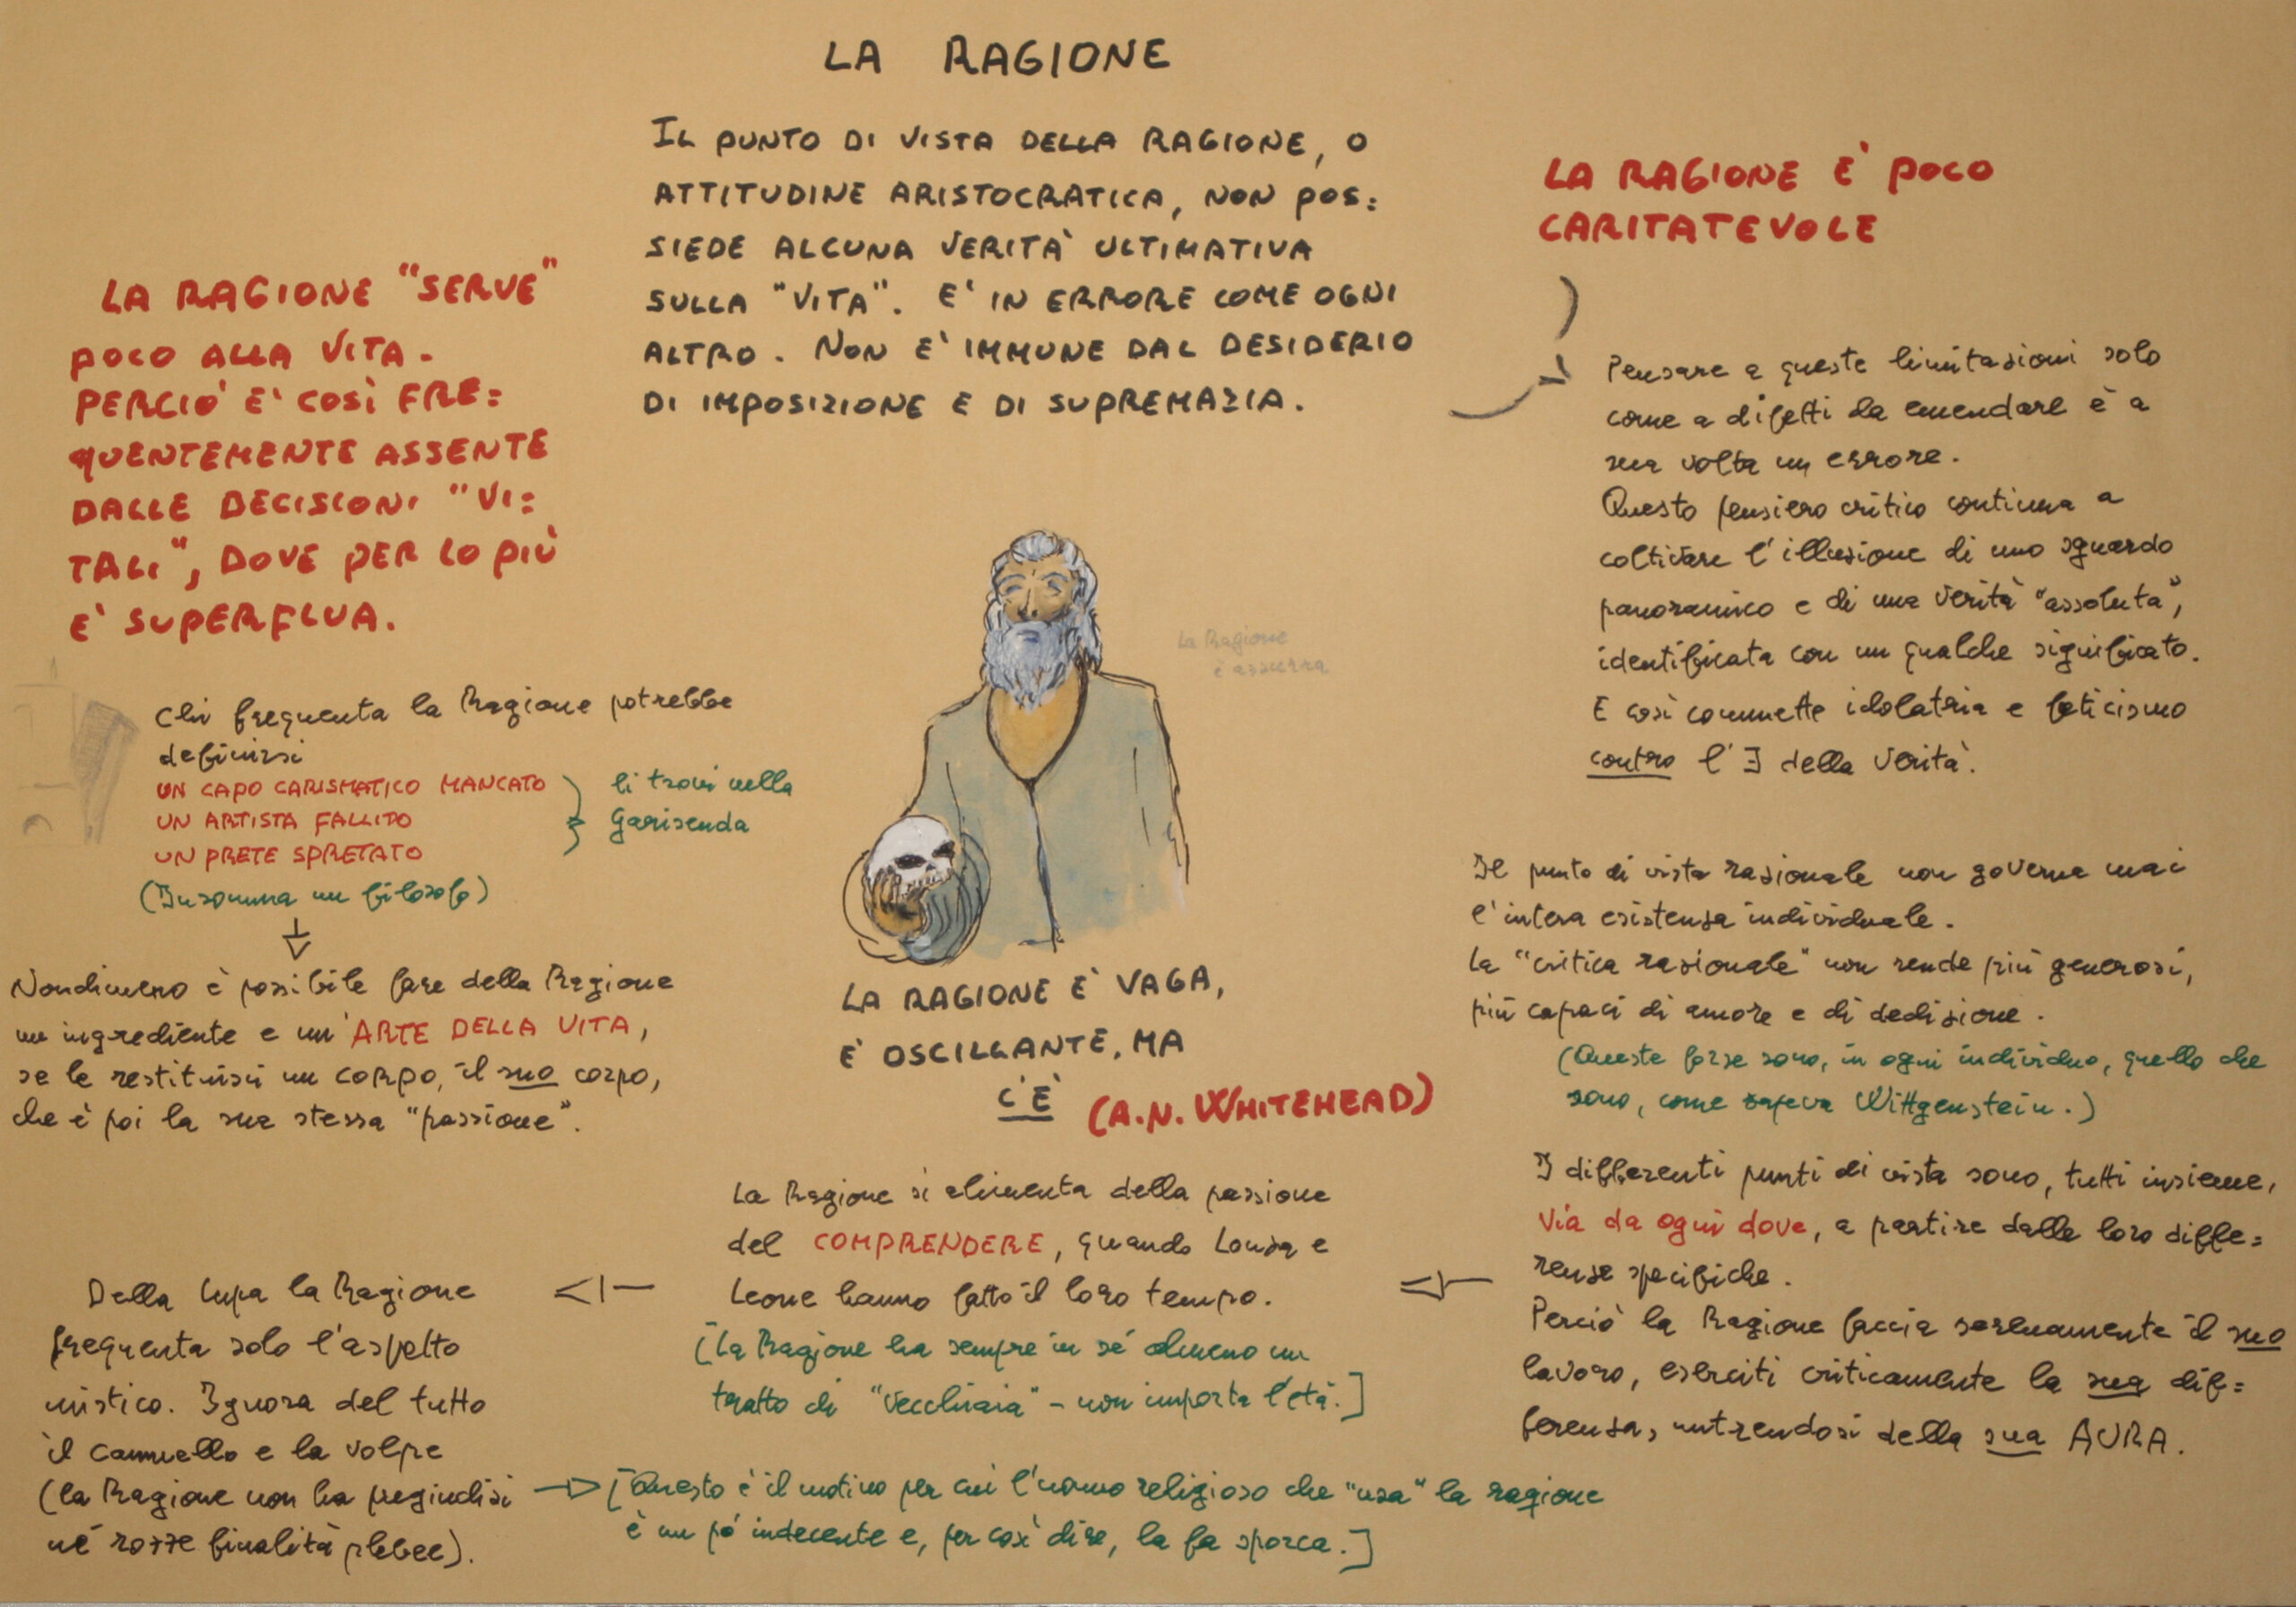 LA RAGIONE
IL PUNTO DI VISTA DELLA RAGIONE, O
ATTITUDINE ARISTOCRATICA, NON POS=
SIEDE ALCUNA VERITÀ ULTIMATIVA
SULLA "VITA". E' IN ERRORE COME OGNI
ALTRO. NON E' IMMUNE DAL DESIDERIO
DI IMPOSIZIONE E DI SUPREMAZIA.
LA RAGIONE "SERVE"
POCO ALLA VITA.
PERCIÒ E' COSÌ FRE=
QUENTEMENTE ASSENTE
DALLE DECISIONI "VI=
TALI", DOVE PER LO PIÙ
E' SUPERFLUA.
Chi frequenta la Ragione potrebbe
definirsi
UN CAPO CARISMATICO MANCATO
UN ARTISTA FALLITO
UN PRETE SPRETATO
(Insomma un filosofo)
li trovi nella
Garisenda
Nondimeno è possibile fare della Ragione
un ingrediente e un'ARTE DELLA VITA,
se le restituisci un corpo, il suo corpo,
che è poi la sua stessa "passione".
La Ragione
è azzurra
LA RAGIONE E' VAGA,
E' OSCILLANTE, MA
C'È (A.N. WHITEHEAD)
LA RAGIONE E' POCO
CARITATEVOLE
Pensare a queste limitazioni solo
come a difetti da emendare è a
sua volta un errore.
Questo pensiero critico continua a
coltivare l'illusione di uno sguardo
panoramico e di una verità "assoluta",
identificata con un qualche significato.
E così commette idolatria e feticismo
contro l'∃ della Verità.
Il punto di vista razionale non governa mai
l'intera esistenza individuale.
La "critica razionale" non rende più generosi,
più capaci di amore e di dedizione.
(Queste forze sono, in ogni individuo, quello che
sono, come sapeva Wittgenstein.)
I differenti punti di vista sono, tutti insieme,
Via da ogni dove, a partire dalle loro diffe=
renze specifiche.
Perciò la Ragione faccia serenamente il suo
lavoro, eserciti criticamente la sua dif=
ferenza, nutrendosi della sua AURA.
La Ragione si alimenta della passione
del COMPRENDERE, quando Lonza e
Leone hanno fatto il loro tempo.
[La Ragione ha sempre in sé almeno un
tratto di "vecchiaia" - non importa l'età.]
Della Lupa la Ragione
frequenta solo l'aspetto
mistico. Ignora del tutto
il cammello e la volpe
(la Ragione non ha pregiudizi
né rozze finalità plebee).
[Questo è il motivo per cui l'uomo religioso che "usa" la ragione
è un po' indecente e, per così dire, la fa sporca.]